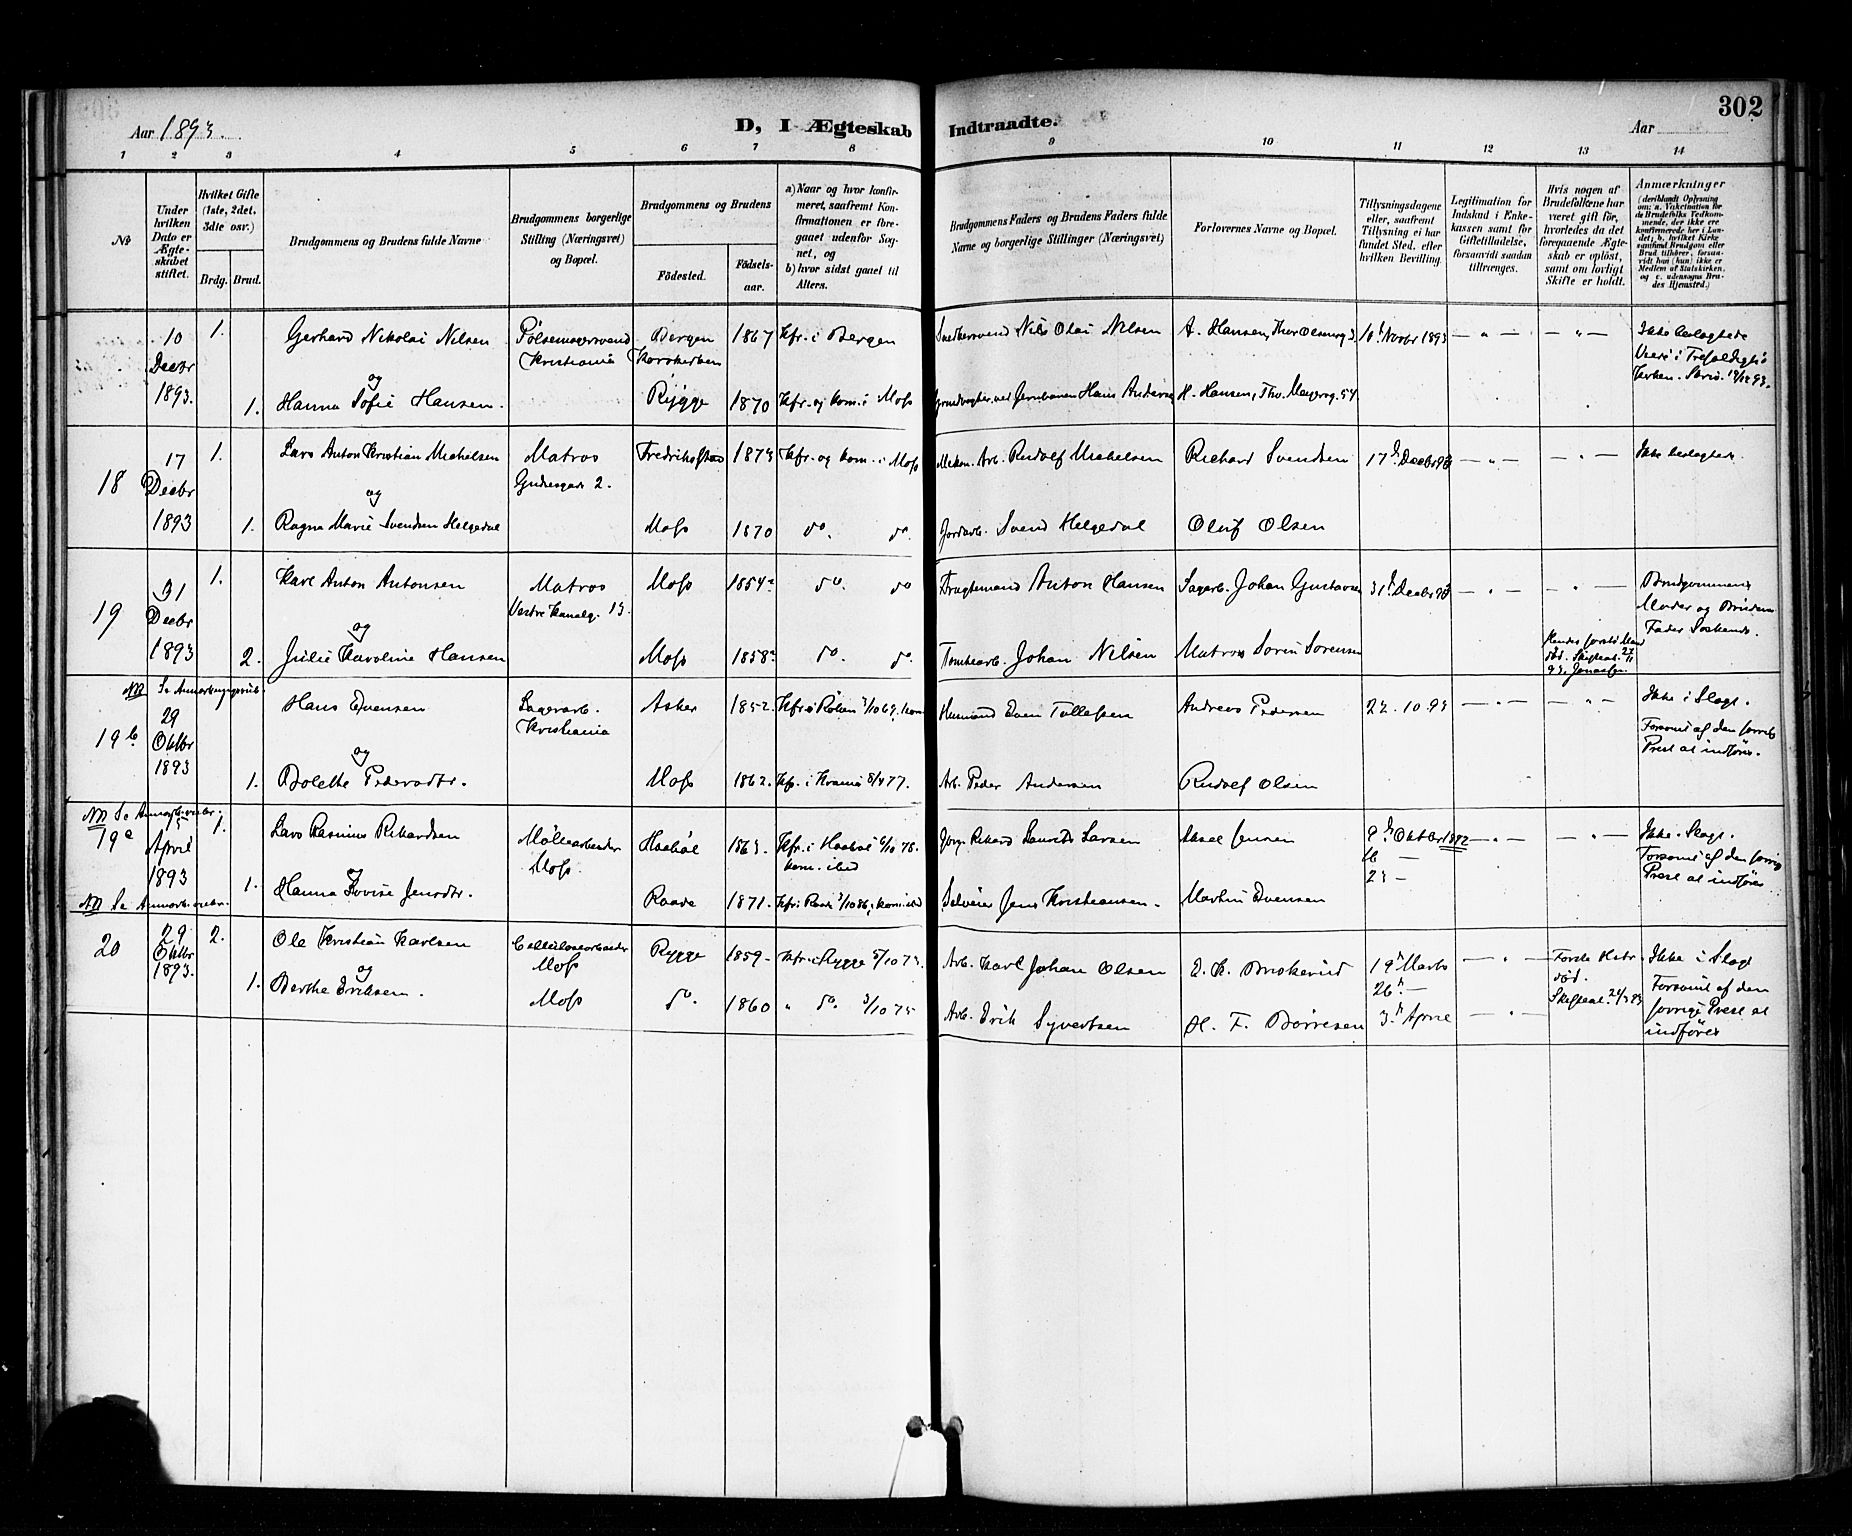 302
Aar 1893.
D, I Ægteskab Indtraadte.
Aar
1 2 3 4 5 6 7 8 9 10 11 12 13 14
No
Under hvilken Dato er Ægteskabet stiftet.
Hvilket Gifte (1ste, 2det, 3die osv.)
Brdg. Brud.
Brudgommens og Brudens fulde Navne
Brudgommens borgerlige Stilling (Næringsvei) og Bopæl.
Brudgommens og Brudens
Födested.
Födselsaar.
a) Naar og hvor konfirmeret, saafremt Konfirmationen er foregaaet udenfor Sognet, og
b) hvor sidst gaaet til Alters.
Brudgommens Faders og Brudens Faders fulde Navne og borgerlige Stillinger (Næringsvei)
Forlovernes Navne og Bopæl.
Tillysningsdagene eller, saafremt Tillysning ei har fundet Sted, efter hvilken Bevilling.
Legitimation for Indskud i Enkekassen samt for Giftetilladelse, forsaavidt saadan tiltrænges.
Hvis nogen af Brudefolkene har været gift før, hvorledes da det foregaaende Ægteskab er oplöst, samt om lovligt Skifte er holdt.
Anmærkninger
(deriblandt Oplysning om: a. Vakcination for de Brudefolks Vedkommende, der ikke ere konfirmerede her i Landet; b. hvilket Kirkesamfund Brudgom eller Brud tilhörer, forsaavidt han (hun) ikke er Medlem af Statskirken, og c. udensogns Brudes Hjemsted.)
10 Decbr 1893. 1. Gerhard Nikolai Nilsen Pølsemagersvend Kristiania Bergen Korskirken 1867 Kfr. i Bergen Snedkersvend Nils Olai Nilsen A. Hansen, Thor Olsensg 3 10d Novbr 1893 — " — — " — Ikke beslægtede Viede i Trefoldigh. Kirken.
og
1. Hanna Sofie Hansen. Rygge 1870 Kfr. og kom. i Moss Hans Andersen H. Hansen, Thv. Meyersg. 54
18 17 Decbr 1893 1. Lars Anton Kristian Michelsen Matros Gudesgade 2. Fredrikstad 1873 Kfr. og kom. i Moss Mekan. Arb. Rudolf Michelsen Richard Svendsen 17d Decbr 93 — " — — " — Ikke beslægtede.
og
1. Ragna Marie Svendsen Helgedal Moss 1870 do. do Jordarb. Svend Helgedal Oluf Olsen
19 31 Decbr 1893 1. Karl Anton Antonsen Matros Vestre Kanalg. 13. Moss 1854 do. do Fragtemand Anton Hansen Sagarb. Johan Gustavsen 31d Decbr 93 — " — " — Brudgommens Moder og Brudens Fader Søskende.
og
2. Julie Karoline Hansen Moss 1858 do. do. Tomtearb. Johan Nilsen Matros Sören Sörensen Hendes første Mand død. Skifteat. 27/11 93.
NB Se Anmerkningsrub.
19b 29 Oktbr 1893 Hans Evensen Lagerarb. Kristiania Asker 1852. Kfr. i Röken /10 67, kom Husmand Even Tollefsen Andreas Pedersen 22. 10. 93 — " — — " — Ikke i Slægt. Forsømt af den forrige Prest at indføres.
og
1. Bolette Pedersdtr. Moss 1862. Kfr. i Krania 8/4 77. Arb. Peder Andersen Rudolf Olsen
NB Se Anmerkn.rubr.
19a April 1893 1. Lars Rasmus Rikardsen Møllearbeider Moss. Haabøl 1863. Kfr. i Haabøl 6/10 78. kom. ibid Rikard Lauritz Larsen Aksel Jensen 9d Oktbr 1892 16 — 23 — — " — — " — Ikke i Slægt. Forsømt af den forrige Prest at indføres.
og
1. Hanna Lovise Jensdtr. Raade 1871. Kfr. i Raade 3/10 86, kom. ibid Selveier Jens Kristiansen. Martin Evensen
NB Se Anmerkn.rubr.
20 29 Oktbr 1893. 2. Ole Kristian Karlsen Cellulosearbeider Moss Rygge 1859. Kfr. i Rygge 5/10 73. Arb. Karl Johan Olsen E. K. Buskerud 19d Marts 26d — — " — Første Hustr. død. Skifteat. 24/3 93 Ikke i Slægt Forsømt af den forrige Prest at indføres
og
1. Berthe Eriksen. Moss do. 1860 " do. 3/10 75 Arb. Erik Syvertsen H. F. Børresen 3d April — " —